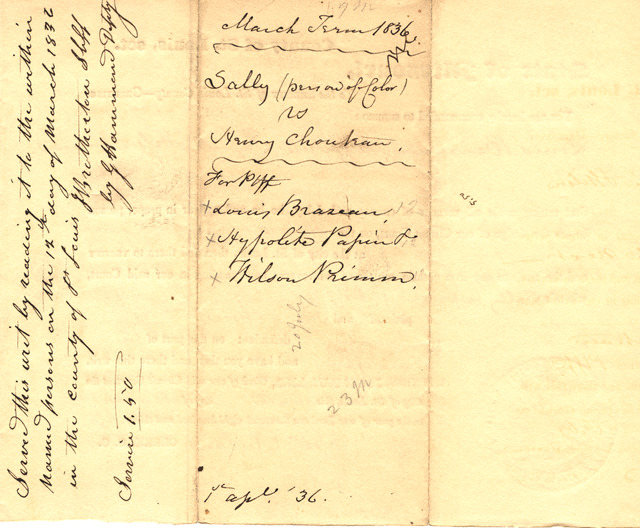 March Term 1836
Sally (person of Color)
vs
Henry Chouteau.
For Plff
x Louis Brazeau,
x Hypolite Papin &
x Wilson Primm.
20 July
23 M
1st apl. '36.
Served this writ by reading it to the within
Named persons on the 12th day of March 1836
in the county of St Louis J Brotherton Shff
by G Hammond Depty
Service 1.50